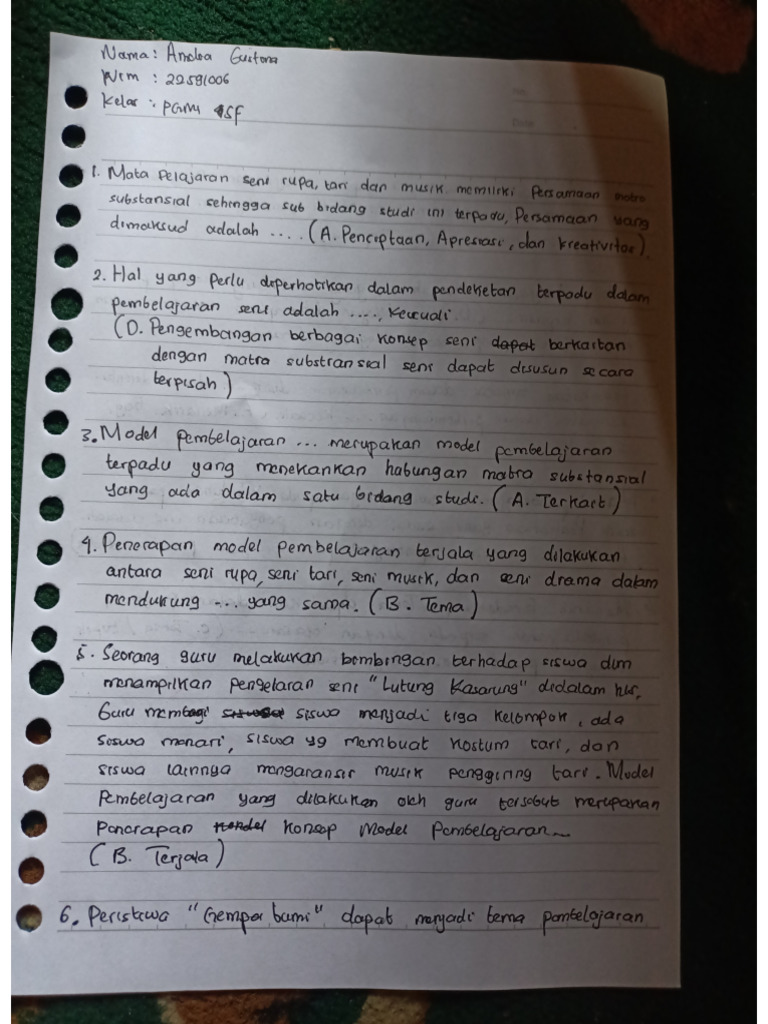 Nama: Andea Gustona
Nim : 22591006
Kelas : PGMI 5F
1. Mata Pelajaran seni rupa, tari dan musik memiliki Persamaan matra
substansial sehingga sub bidang studi ini terpadu, Persamaan yang
dimaksud adalah .... (A. Penciptaan, Apresiasi, dan kreativitas).
2. Hal yang perlu diperhatikan dalam pendekatan terpadu dalam
pembelajaran seni adalah ...., Kecuali.
(D. Pengembangan berbagai konsep seni dapat berkaitan
dengan matra substransial seni dapat disusun secara
terpisah)
3. Model pembelajaran ... merupakan model pembelajaran
terpadu yang menekankan habungan matra substansial
yang ada dalam satu bidang studi. (A. Terkait)
4. Penerapan model pembelajaran terjala yang dilakukan
antara seni rupa, seni tari, seni musik, dan seni drama dalam
mendukung ... yang sama. (B. Tema)
5. Seorang guru melakukan bimbingan terhadap siswa dlm
menampilkan pengelaran seni "Lutung Kasarung" didalam kls,
Guru membagi siswa menjadi tiga kelompok, ada
siswa menari, siswa yg membuat kostum tari, dan
siswa lainnya mengaransir musik penggiring tari. Model
Pembelajaran yang dilakukan oleh guru tersebut merupakan
Penerapan konsep Model Pembelajaran...
(B. Terjala)
6. Peristiwa "Gempa bumi" dapat menjadi tema pembelajaran